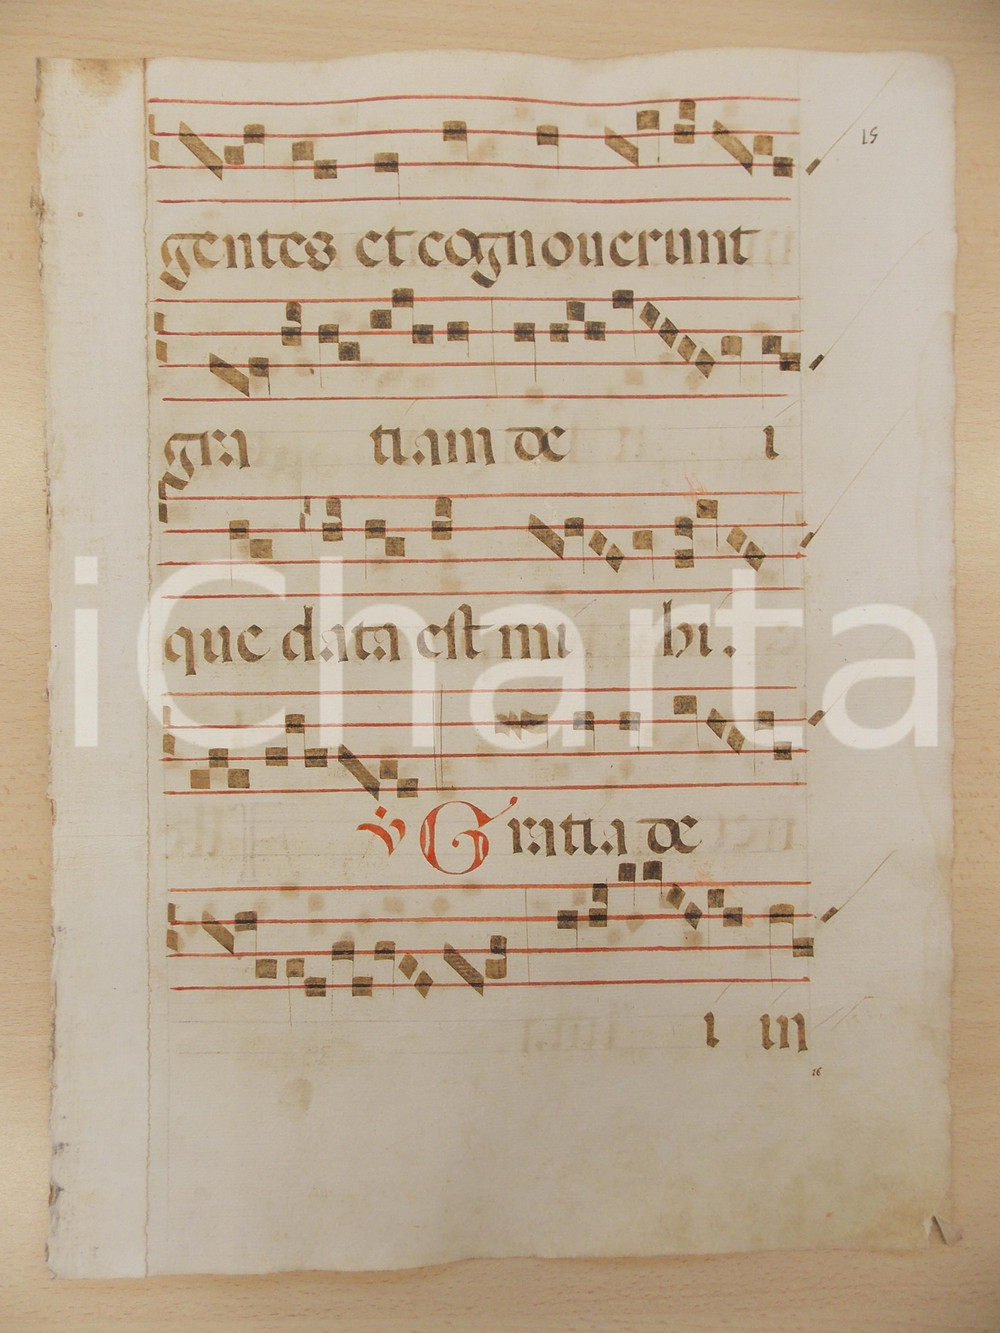 15
gentes et cognoverunt
gra tiam de i
que data est mi hi.
℣ Gratia de
i in
16
iCharta